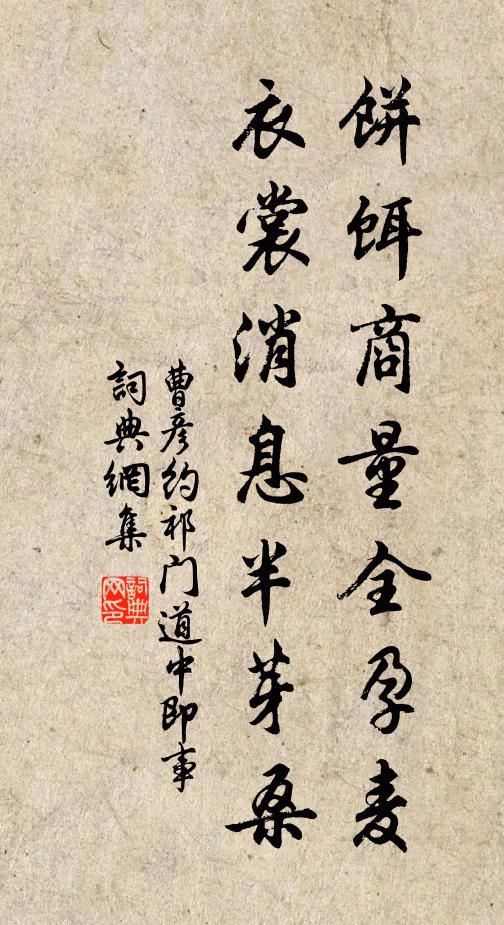 餅餌商量全孕麦
衣裳消息半芽桑
曹彦约祁门道中即事
詞典網集
詞典网印